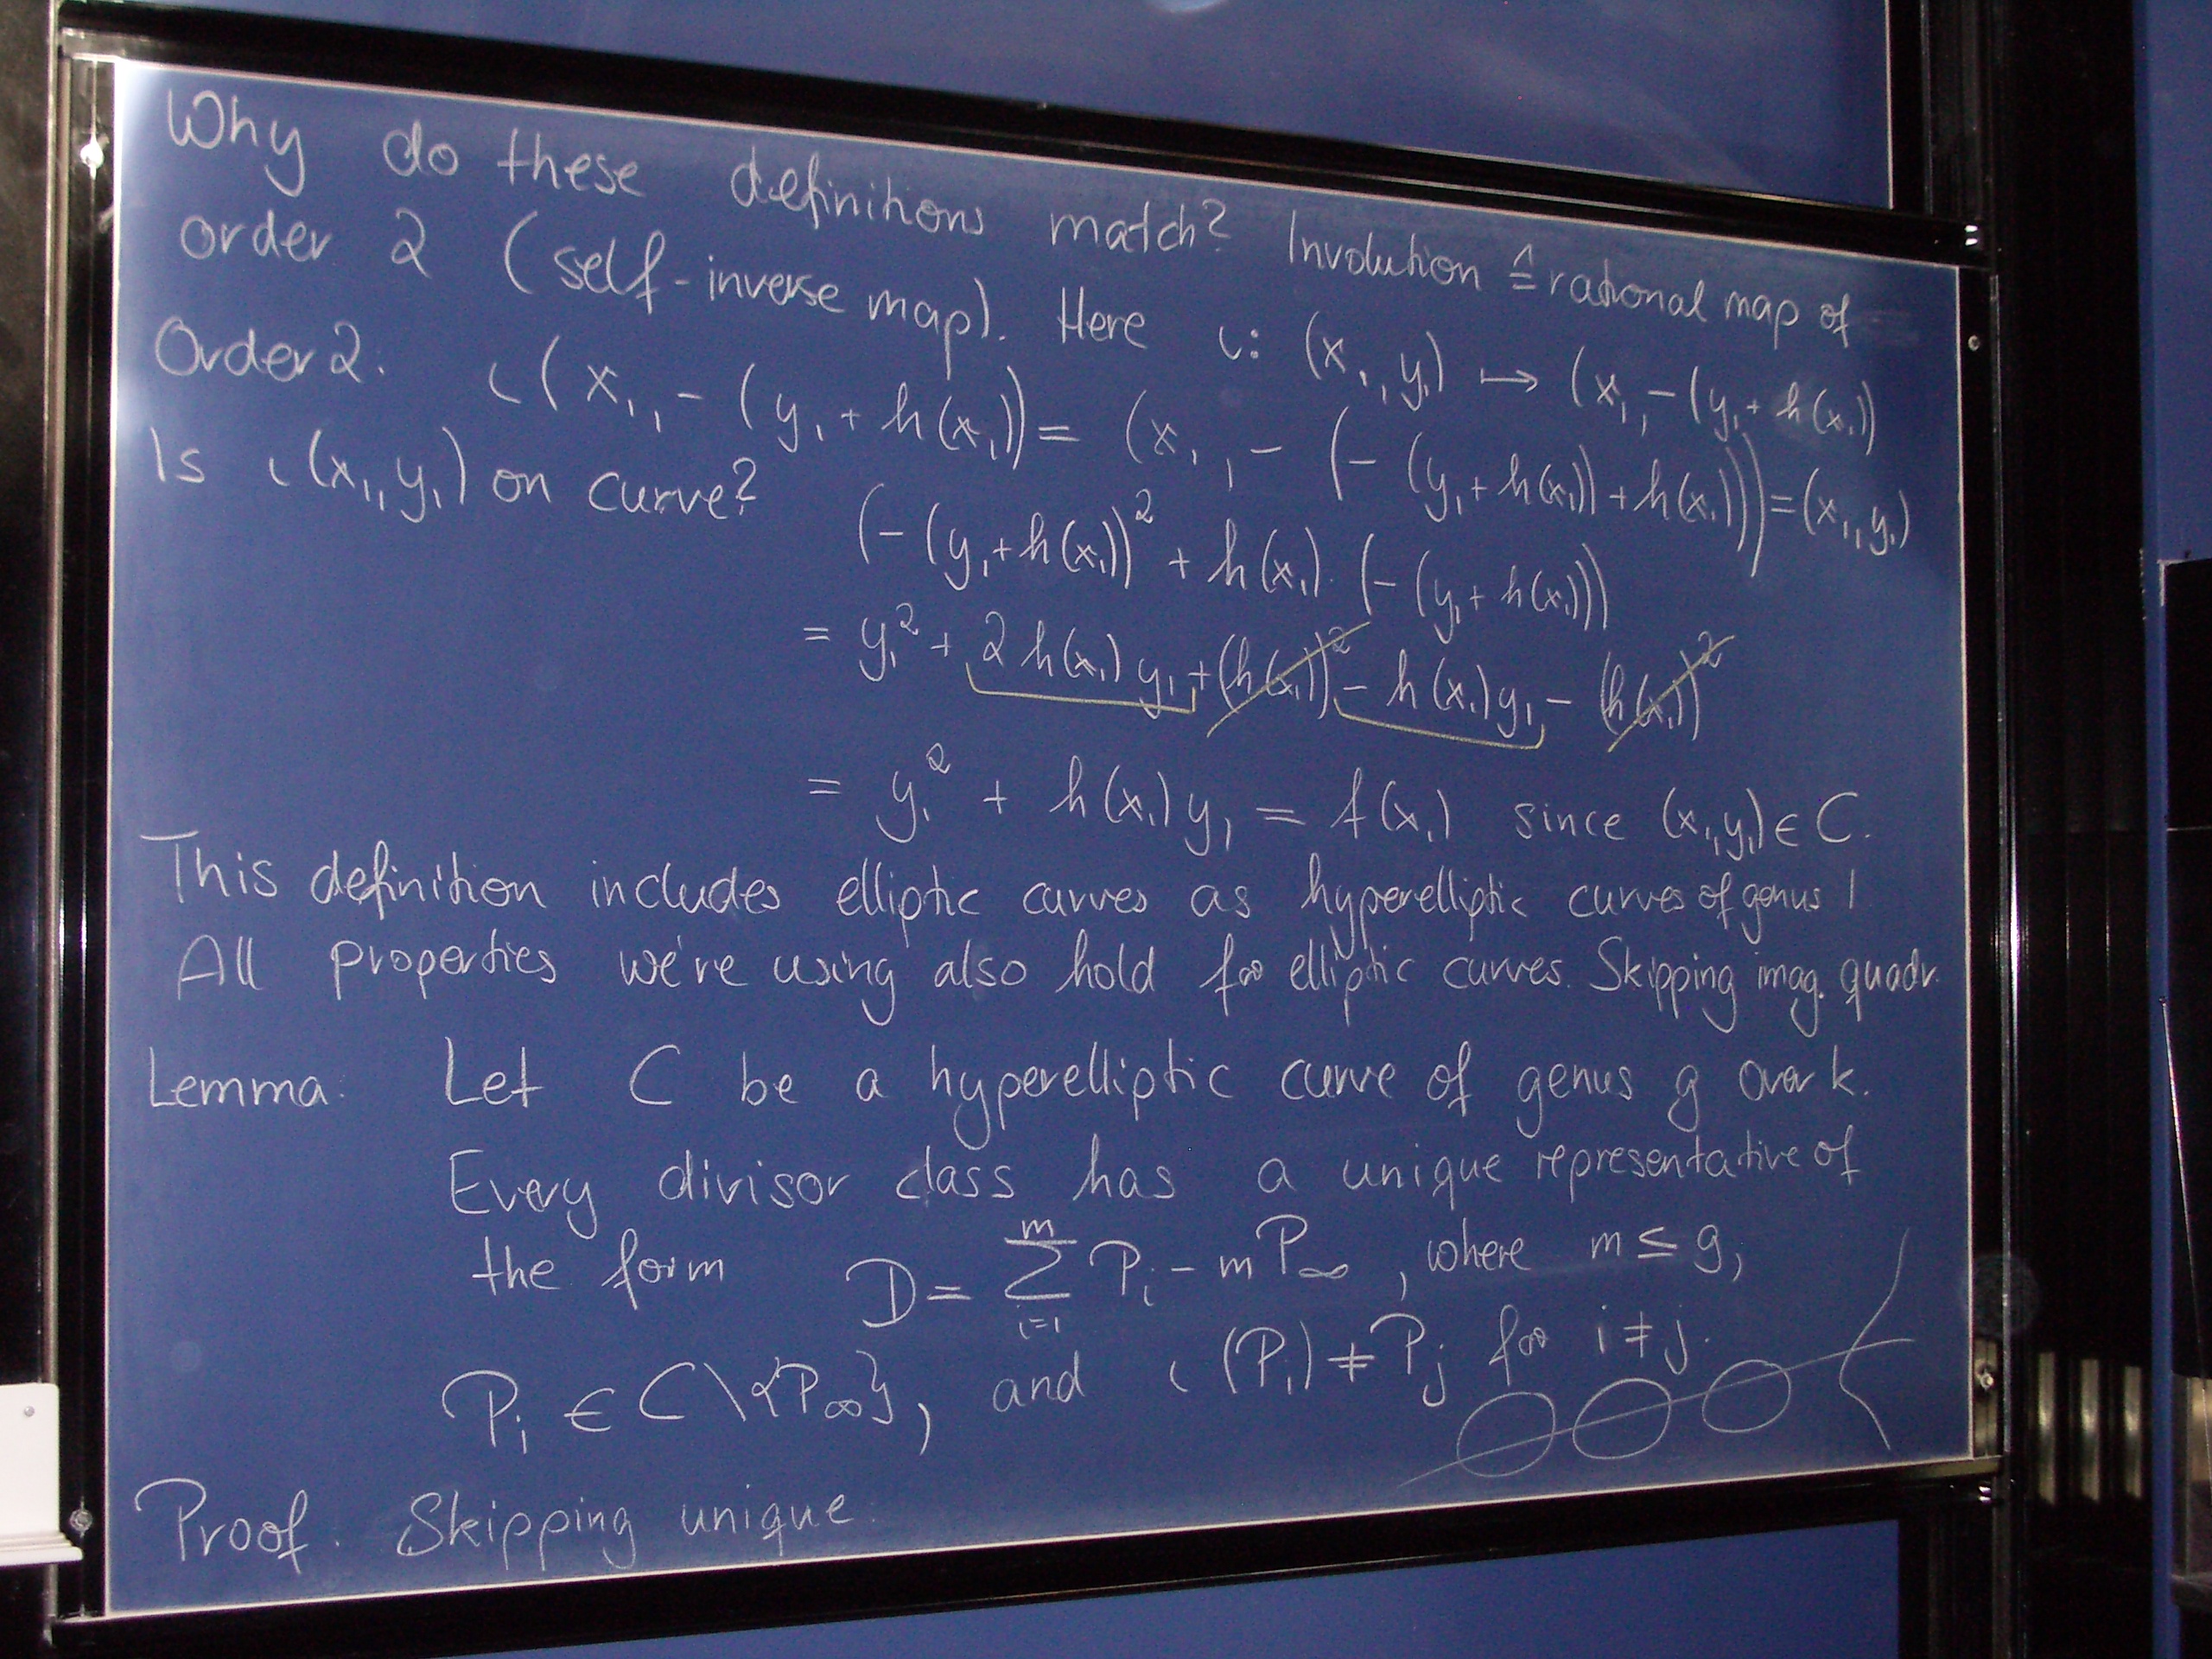 Why do these definitions match? Involution ≙ rational map of
order 2 (self-inverse map). Here ι: (x₁, y₁) ↦ (x₁, -(y₁ + h(x₁))
Order 2. ι(x₁, -(y₁ + h(x₁)) = (x₁, - (- (y₁ + h(x₁)) + h(x₁))) = (x₁, y₁)
Is ι(x₁, y₁) on curve?
(-(y₁+h(x₁))² + h(x₁) · (-(y₁ + h(x₁)))
= y₁² + 2h(x₁) y₁ + (h(x₁))² - h(x₁) y₁ - (h(x₁))²
= y₁² + h(x₁) y₁ = f(x₁) since (x₁, y₁) ∈ C.
This definition includes elliptic curves as hyperelliptic curves of genus 1
All properties we're using also hold for elliptic curves. Skipping imag. quadr.
Lemma. Let C be a hyperelliptic curve of genus g over k.
Every divisor class has a unique representative of
the form D = ∑_{i=1}^{m} P_i - m P_∞, where m ≤ g,
P_i ∈ C\{P_∞}, and ι(P_i) ≠ P_j for i ≠ j.
Proof. Skipping unique.